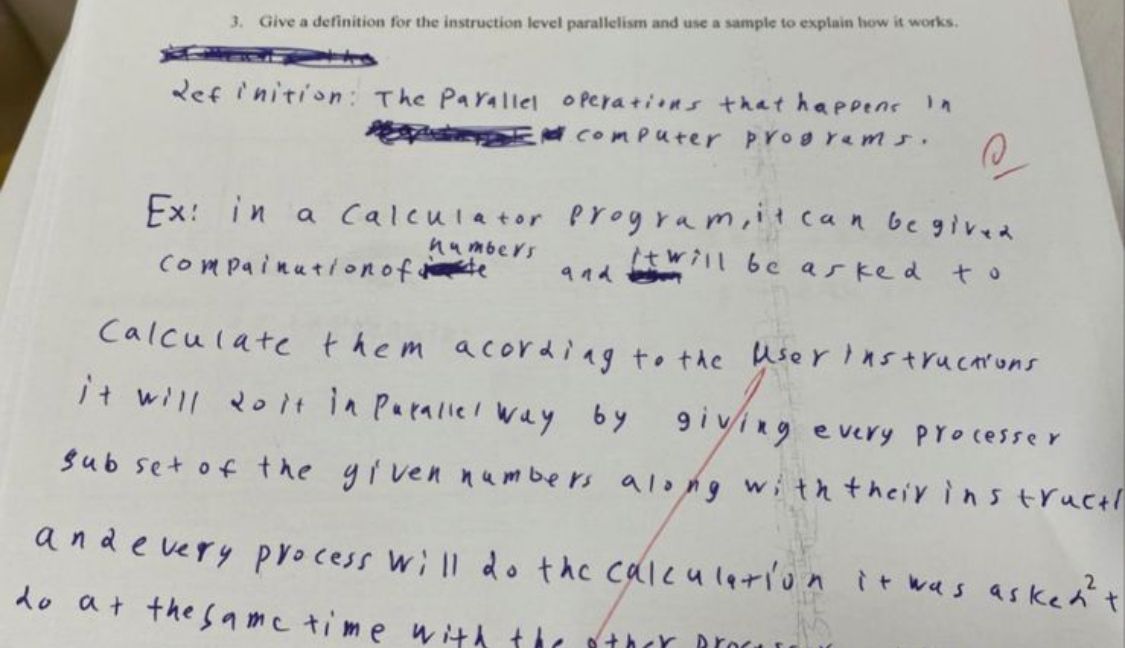 3. Give a definition for the instruction level parallelism and use a sample to explain how it works.
definition: The Parallel operations that happens in
computer programs.
Ex: in a Calculator Program, it can be gived
numbers
compainution of and it will be asked to
Calculate them acording to the User instructions
it will do it in Parallel way by giving every processer
sub set of the given numbers along with their instructi
and every process will do the calculation it was asked
do at the same time with the other